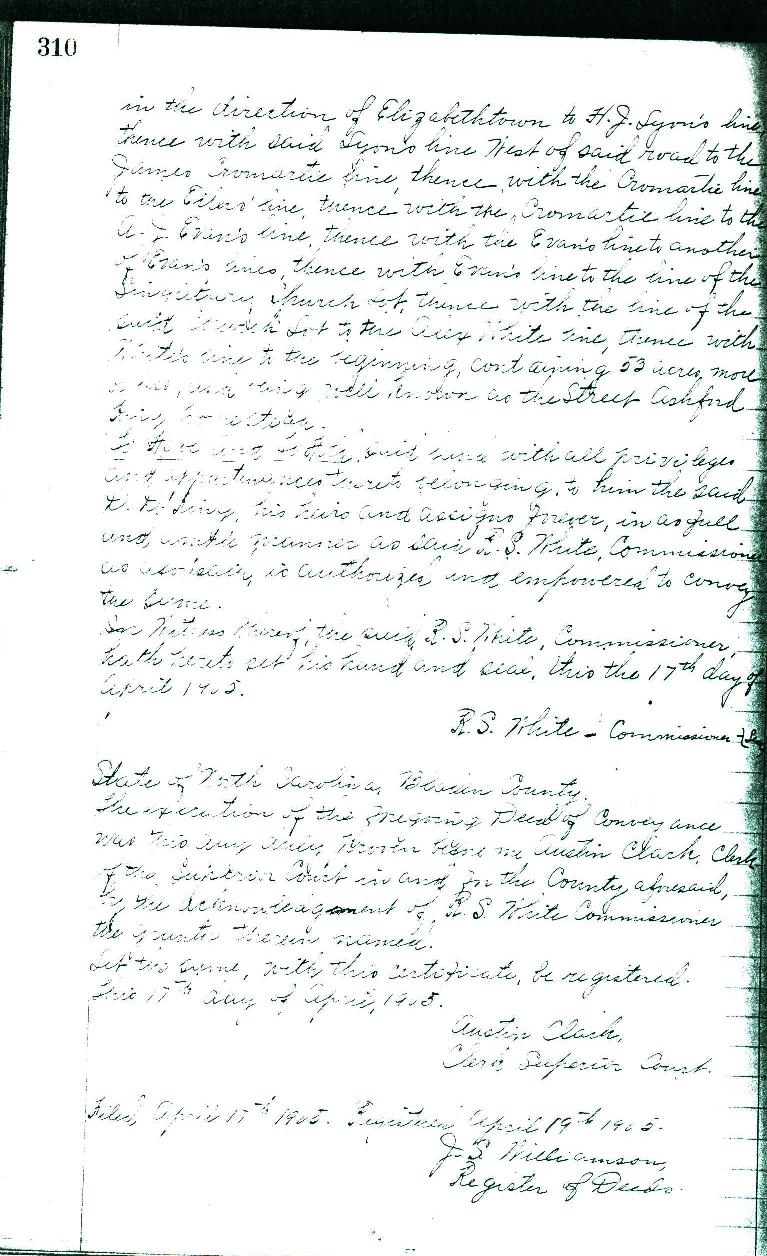 310
in the direction of Elizabethtown to H.J. Lyon's line,
thence with said Lyon's line West of said road to the
James Cromartie line, thence with the Cromartie line
to the line, thence with the Cromartie line to the
A. J. Evan's line, thence with the Evan's line to another
of Evan's lines, thence with Evan's line to the line of the
Singletary Church Lot, thence with the line of the
said Church Lot to the Alex White line, thence with
White's line to the beginning, containing 53 acres, more
or less, and being well known as the Street Ashford
King homestead.
To Have and to Hold said land with all privileges
and appurtenances thereto belonging, to him the said
King, his heirs and assigns forever, in as full
and ample manner as said R.S. White, Commissioner
as aforesaid, is authorized and empowered to convey
the same.
In Witness Whereof, the said R.S. White, Commissioner,
hath hereto set his hand and seal, this the 17th day of
April 1905.
R.S. White - Commissioner -
State of North Carolina, Bladen County.
The execution of the foregoing Deed of Conveyance
was this day duly proven before me Austin Clark, Clerk
of the Superior Court in and for the County aforesaid,
by the acknowledgment of R.S. White Commissioner
the grantor therein named.
Let the same, with this certificate, be registered.
This 17th day of April, 1905.
Austin Clark,
Clerk Superior Court.
Filed, April 17th 1905. Registered April 19th 1905.
J.S. Williamson,
Register of Deeds.